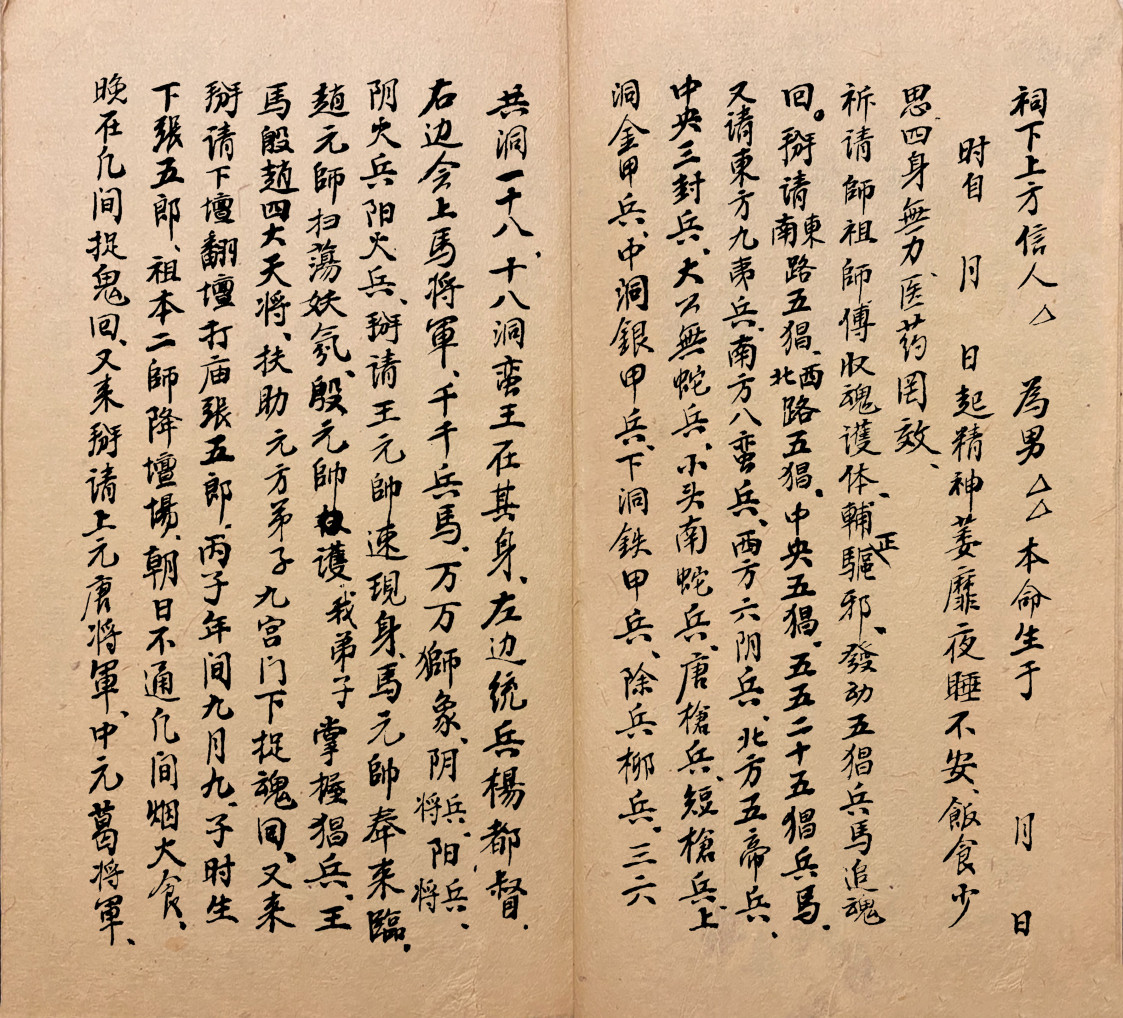 祠下上方信人△　為男△△本命生于　月　日
时自　月　日起精神萎靡夜睡不安、飯食少
思、四身無力、医药罔效、
祈请師祖師傅收魂護体、輔正驅邪、發动五猖兵馬追魂
回。掰请東南路五猖、西北路五猖、中央五猖、五五二十五猖兵馬、
又请東方九夷兵、南方八蛮兵、西方六阴兵、北方五帝兵、
中央三封兵、大公無蛇兵、小头南蛇兵、唐槍兵、短槍兵、上
洞金甲兵、中洞銀甲兵、下洞鉄甲兵、除兵柳兵、三六
共洞一十八、十八洞蛮王在其身、左边统兵楊都督、
右边会上馬将軍、千千兵馬、万万獅象、阴兵将、阳兵将、
阴火兵阳火兵、掰请王元帥速現身、馬元帥奉来臨、
趙元師扫蕩妖氛、殷元帥護我弟子掌握猖兵、王
馬殷趙四大天将、扶助元方弟子九宫门下捉魂回、又来
掰请下壇翻壇打庙张五郎、丙子年间九月九、子时生
下张五郎、祖本二師降壇場、朝日不通凡间烟火食、
晚在凡间捉鬼回、又来掰请上元唐将軍、中元葛将軍、